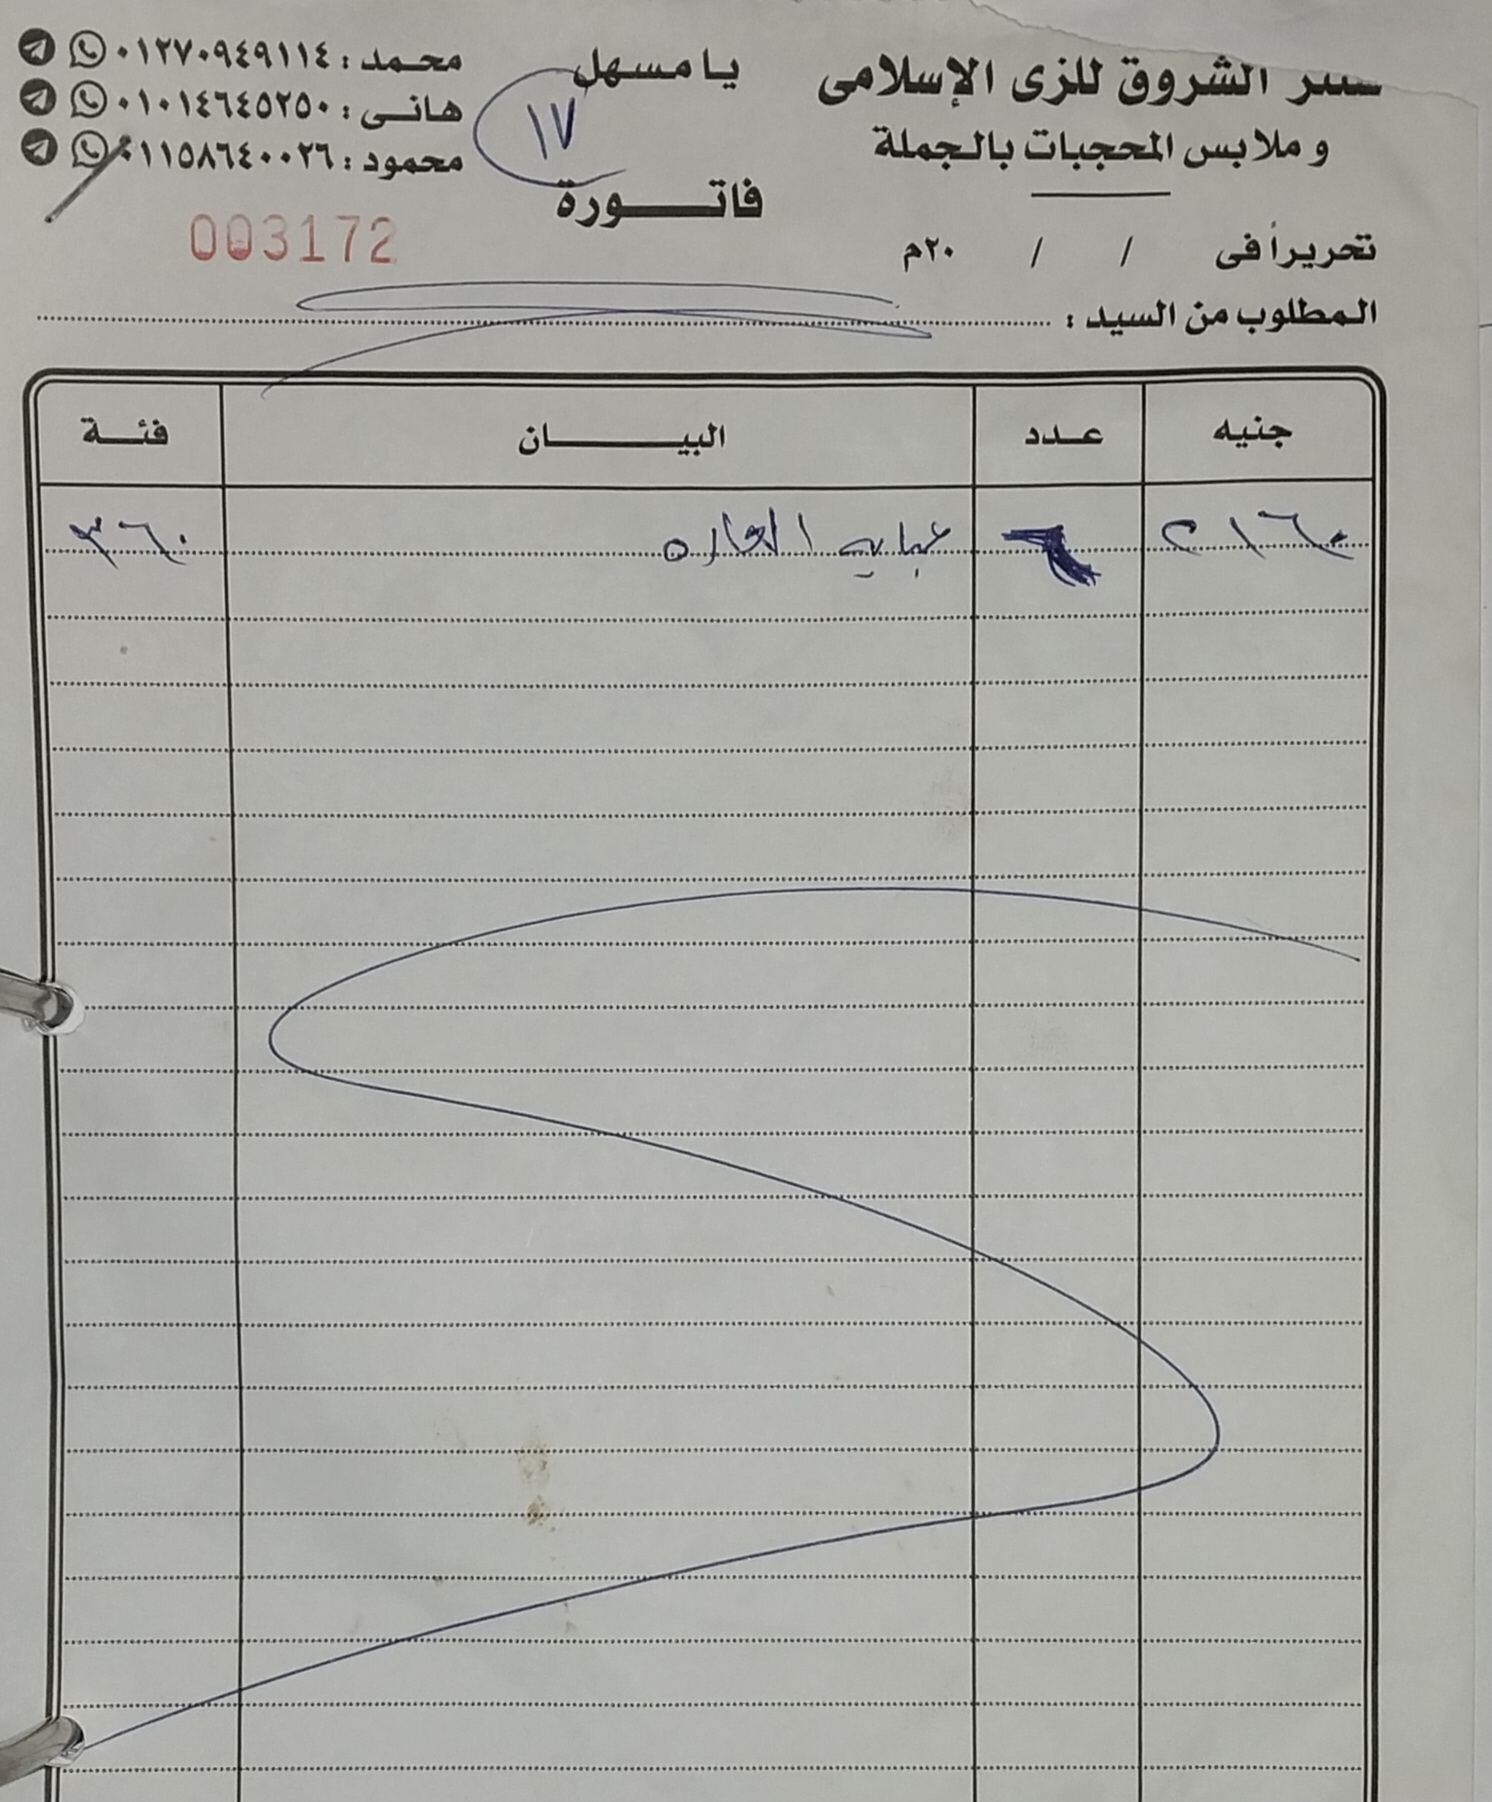 الشروق للزى الإسلامى
و ملابس المحجبات بالجملة
يا مسهل
١٧
فاتـــورة
محمد : ٠١٢٧٠٩٤٩١١٤
هانى : ٠١٠١٤٦٤٥٢٥٠
محمود : ٠١١٥٨٦٤٠٠٢٦
003172
تحريراً فى / / ٢٠م
المطلوب من السيد :
جنيه عدد البيـــان فئة
٢١٦٠ ٦ عبايه ٣٦٠